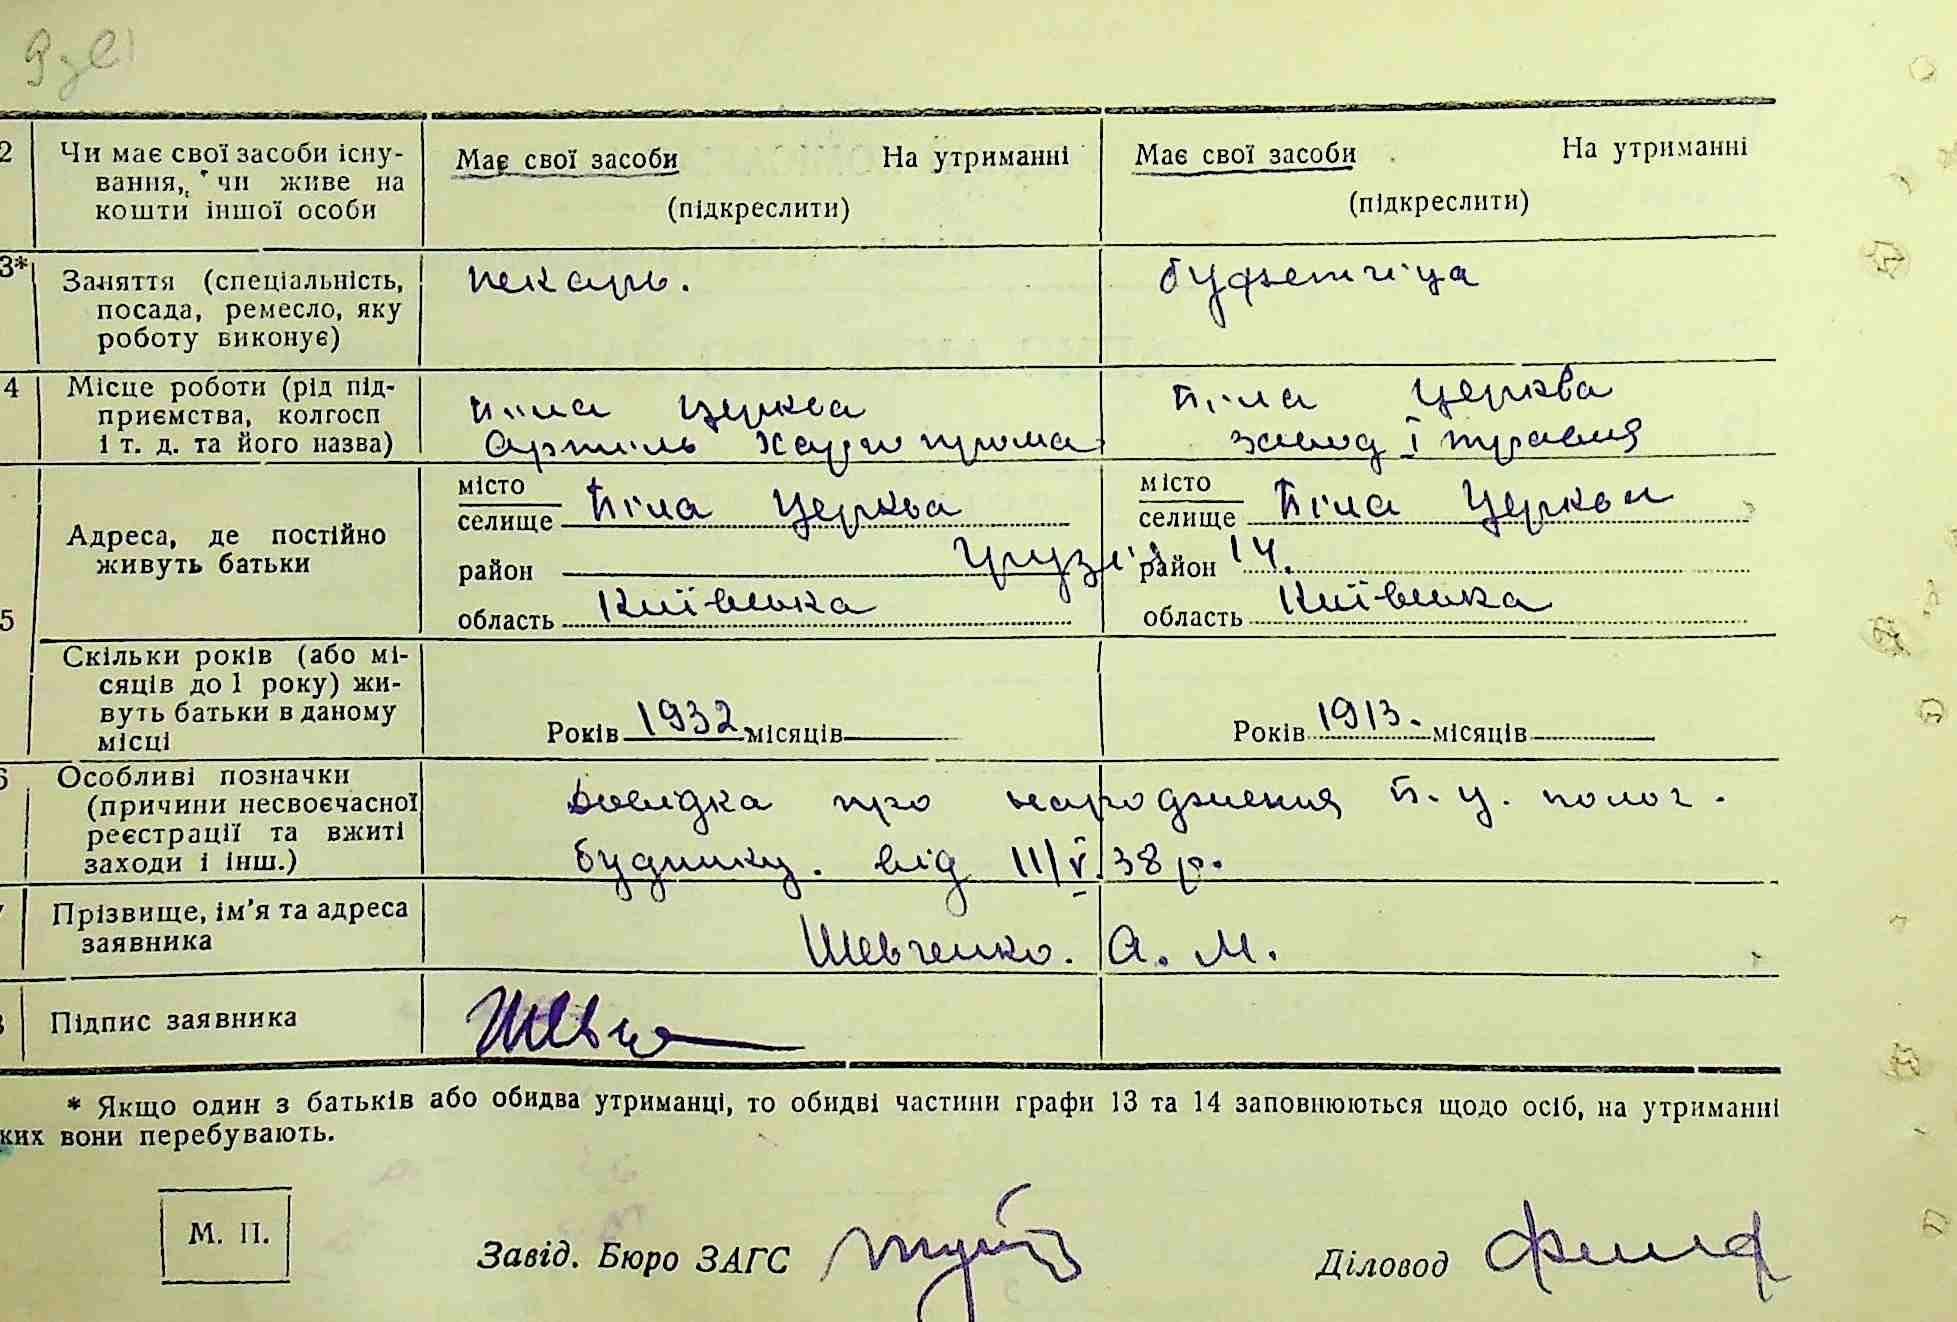 2 Чи має свої засоби існу- Має свої засоби На утриманні Має свої засоби На утриманні
вання, чи живе на
кошти іншої особи (підкреслити) (підкреслити)
3* Заняття (спеціальність, пекарь. буфетчіца
посада, ремесло, яку
роботу виконує)
4 Місце роботи (рід під- Біла Церква Біла Церква
приємства, колгосп Артіль Харчопрома завод І травня
і т. д. та його назва)
5 Адреса, де постійно місто місто
живуть батьки селище Біла Церква селище Біла Церква
район район 14.
область Київська область Київська
Скільки років (або мі-
сяців до 1 року) жи-
вуть батьки в даному Років 1932 місяців Років 1913. місяців
місці
6 Особливі позначки Довідка про народження Б. Ц. полог.
(причини несвоєчасної
реєстрації та вжиті будинку. від 11/V 38 р.
заходи і інш.)
7 Прізвище, ім'я та адреса Шевченко. А. М.
заявника
8 Підпис заявника
* Якщо один з батьків або обидва утриманці, то обидві частини графи 13 та 14 заповнюються щодо осіб, на утриманні
ких вони перебувають.
М. П. Завід. Бюро ЗАГС Діловод